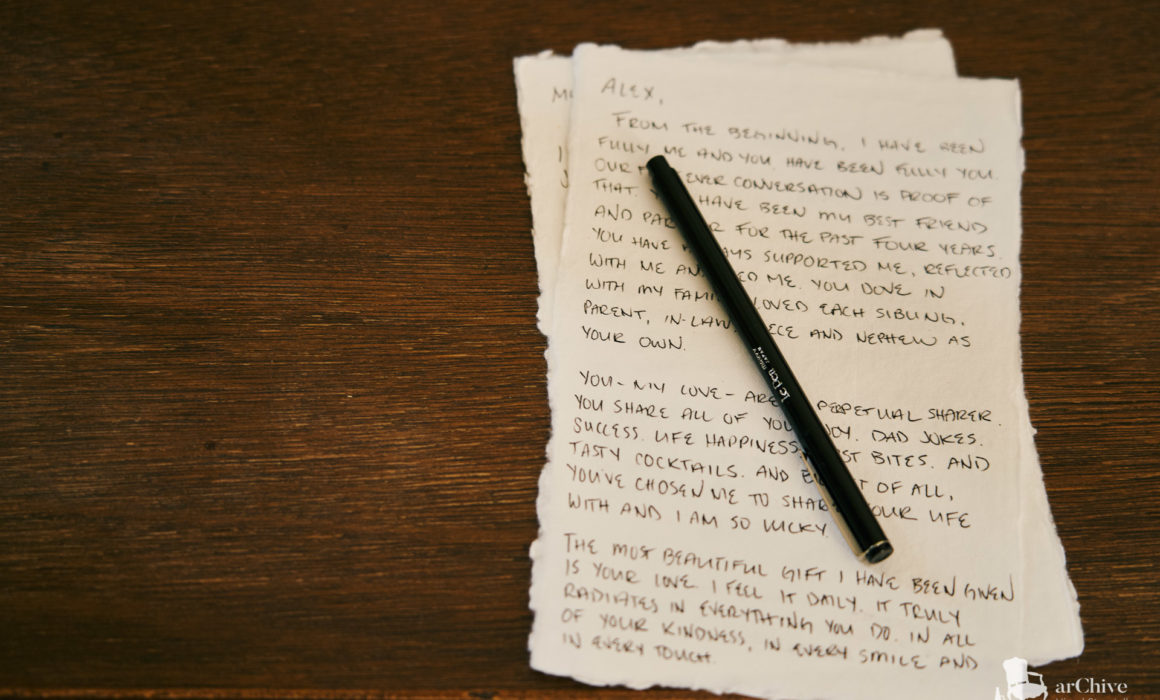 ALEX,
FROM THE BEGINNING, I HAVE BEEN
FULLY ME AND YOU HAVE BEEN FULLY YOU.
OUR EVER CONVERSATION IS PROOF OF
THAT. HAVE BEEN MY BEST FRIEND
AND FOR THE PAST FOUR YEARS.
YOU HAVE SUPPORTED ME, REFLECTED
WITH ME ME. YOU DOVE IN
WITH MY LOVED EACH SIBLING,
PARENT, IN-LAW, AND NEPHEW AS
YOUR OWN.
YOU - MY LOVE - ARE PERPETUAL SHARER.
YOU SHARE ALL OF JOY. DAD JOKES.
SUCCESS. LIFE HAPPINESS. BITES. AND
TASTY COCKTAILS. AND OF ALL,
YOU'VE CHOSEN ME TO YOUR LIFE
WITH AND I AM SO LUCKY.
THE MOST BEAUTIFUL GIFT I HAVE BEEN GIVEN
IS YOUR LOVE. I FEEL IT DAILY. IT TRULY
RADIATES IN EVERYTHING YOU DO. IN ALL
OF YOUR KINDNESS, IN EVERY SMILE AND
IN EVERY TOUCH.
Le Pen
JAPAN
arChive